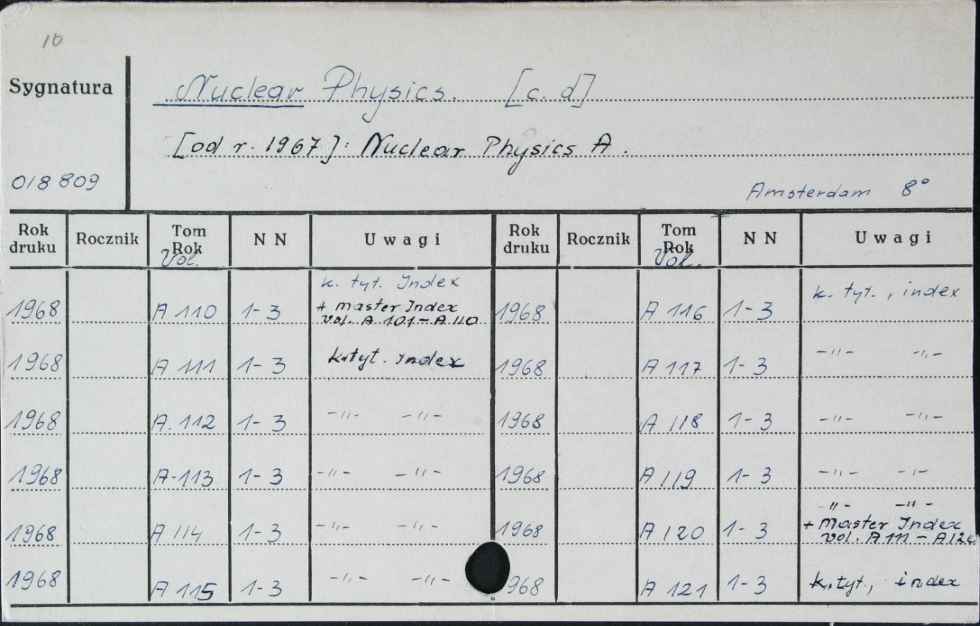 10
Sygnatura
Nuclear Physics. [c. d]
[od r. 1967]: Nuclear Physics A.
018 809
Amsterdam 8°
Rok druku Rocznik Tom Rok Vol. N N Uwagi Rok druku Rocznik Tom Rok Vol. N N Uwagi
1968 A 110 1-3 k. tyt. Index + master Index vol. A 101-A 110 1968 A 116 1-3 k. tyt., index
1968 A 111 1-3 k. tyt. index 1968 A 117 1-3 -"- -"-
1968 A. 112 1-3 -"- -"- 1968 A 118 1-3 -"- -"-
1968 A-113 1-3 -"- -"- 1968 A 119 1-3 -"- -"-
1968 A 114 1-3 -"- -"- 1968 A 120 1-3 -"- -"- + Master Index vol. A 111-A 120
1968 A 115 1-3 -"- -"- 968 A 121 1-3 k. tyt., index